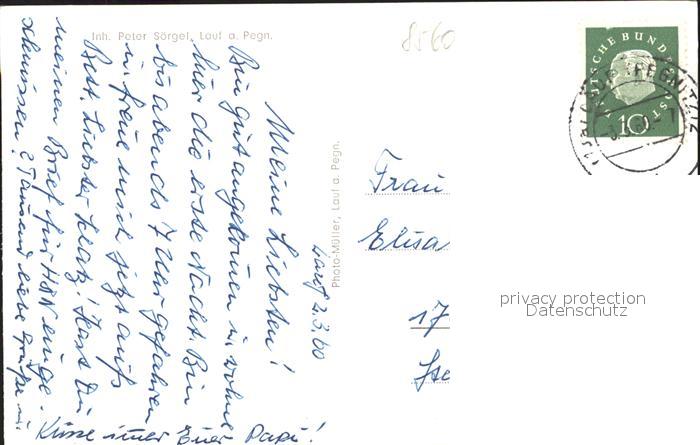 Inh. Peter Sörgel, Lauf a. Pegn.
8560
Lauf 2.3.60
Meine Liebsten!
Bin gut angekommen u. wohne
hier die erste Nacht. Bin
bis abends 7 Uhr gefahren
u. freue mich jetzt aufs
Bett. Liebster Schatz! Hast Du
meinen Brief für H&N einge-
schmissen? Tausend liebe Grüße u.
Küsse immer Euer Papi!
Photo-Müller, Lauf a. Pegn.
DEUTSCHE BUNDESPOST
10
Frau
Elisa
17
privacy protection
Datenschutz